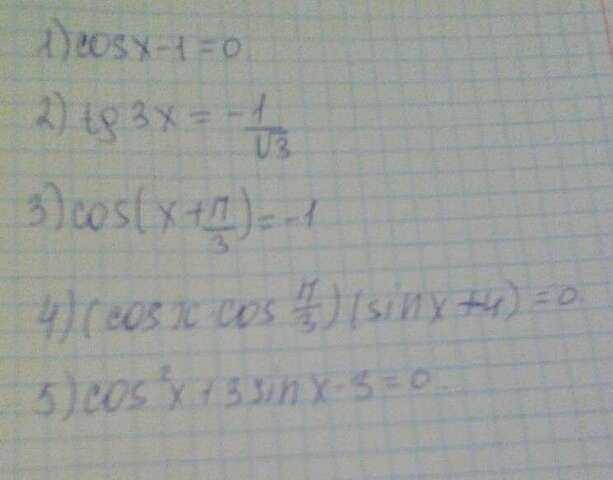 1) cosx-1=0
2) tg 3x = -1/√3
3) cos(x+π/3)=-1
4) (cos x cos π/3)(sinx+4)=0
5) cos²x+3sinx-3=0.